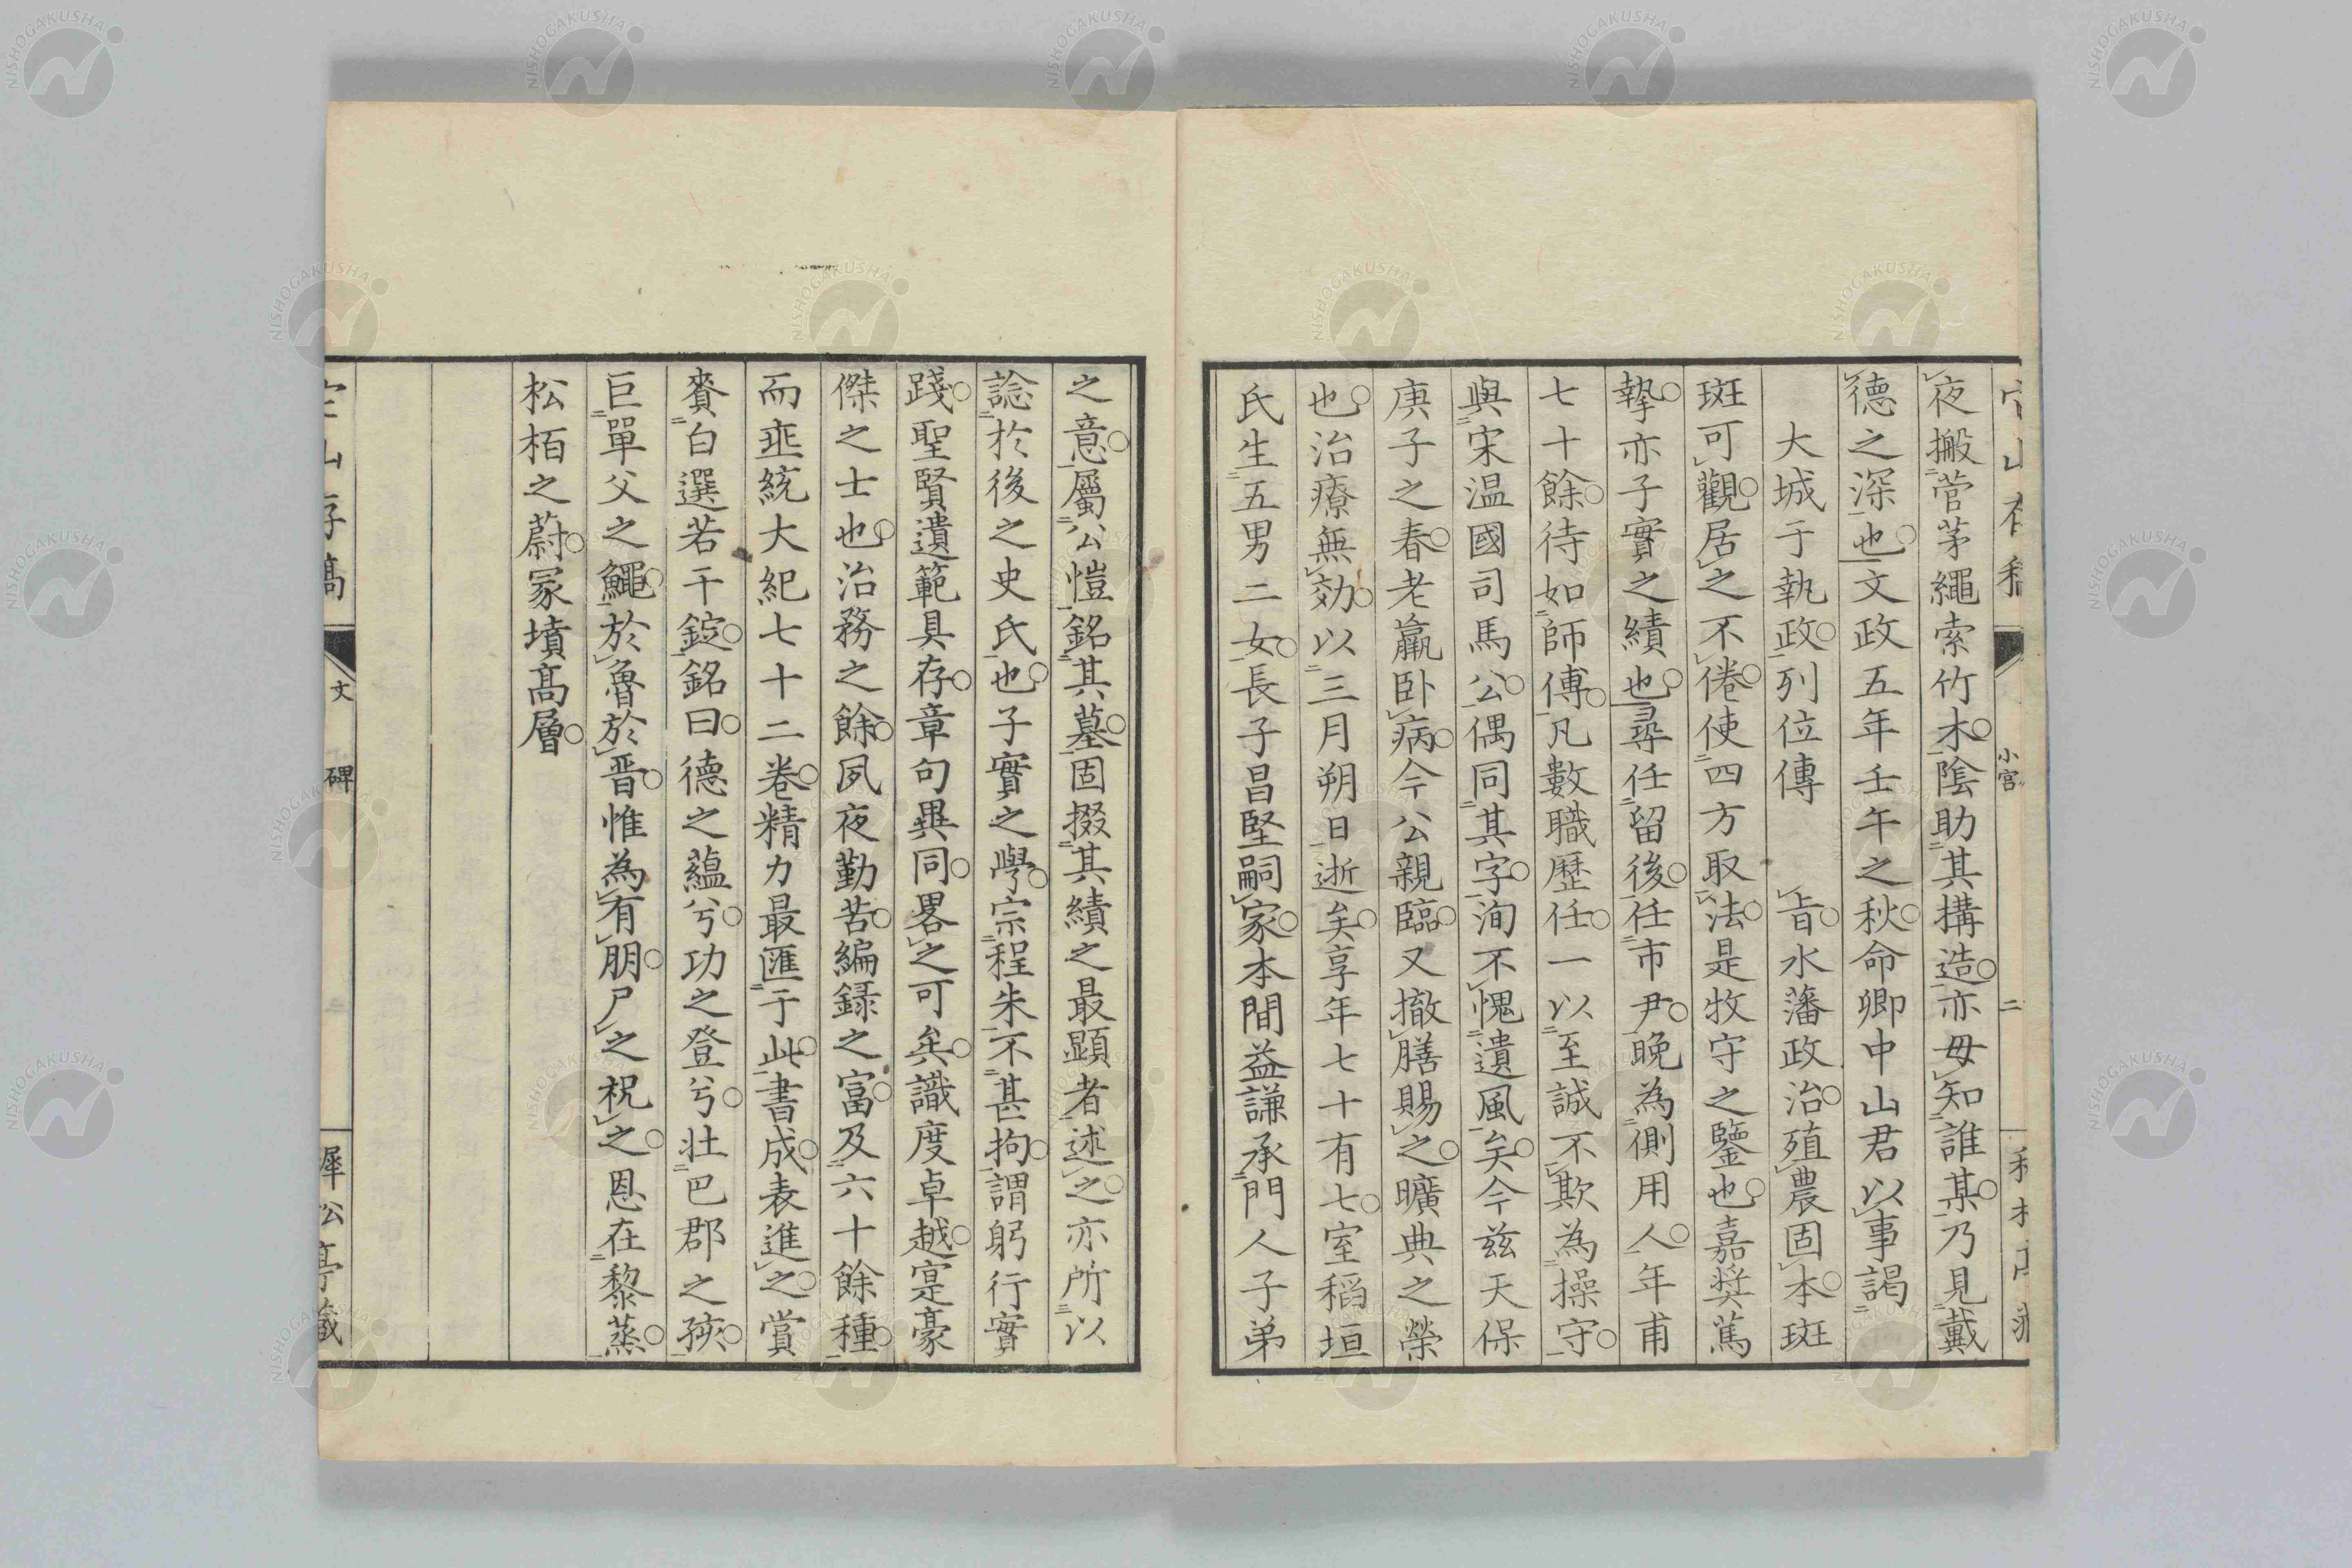 夜搬菅茅繩索竹木○陰助其構造○亦毋知誰某○乃見戴
德之深也○文政五年壬午之秋○命卿中山君以事謁
大城于執政○列位傳 旨○水藩政治○殖農固本○斑
斑可觀○居之不倦○使四方取法○是牧守之鑒也○嘉奖篤
摯○亦子實之績也○尋任留後○任市尹○晚為側用人○年甫
七十餘○待如師傅○凡數職歷任○一以至誠不欺為操守○
與宋温國司馬公○偶同其字○洵不愧遺風矣○今兹天保
庚子之春○老羸卧病○今公親臨○又撤膳賜之○曠典之榮
也○治療無効○以三月朔日逝矣○享年七十有七○室稻垣
氏生五男二女○長子昌堅嗣家○本間益謙承門人子弟
之意○屬公愷銘其墓○固掇其績之最顯者述之○亦所以
諗於後之史氏也○子實之學○宗程朱不甚拘○謂躬行實
踐○聖賢遺範具存○章句異同○畧之可矣○識度卓越○寔豪
傑之士也○治務之餘○夙夜勤苦○編録之富○及六十餘種○
而亞統大紀七十二卷○精力最匯于此○書成○表進之○賞
賚白選若干錠○銘曰○德之藴兮○功之登兮○壮巴郡之殑○
巨單父之鱦○於魯於晋○惟為有朋○尸之祝之○恩在黎蒸○
松栢之蔚○冢墳髙層○
存稿
文
碑
小宫
二